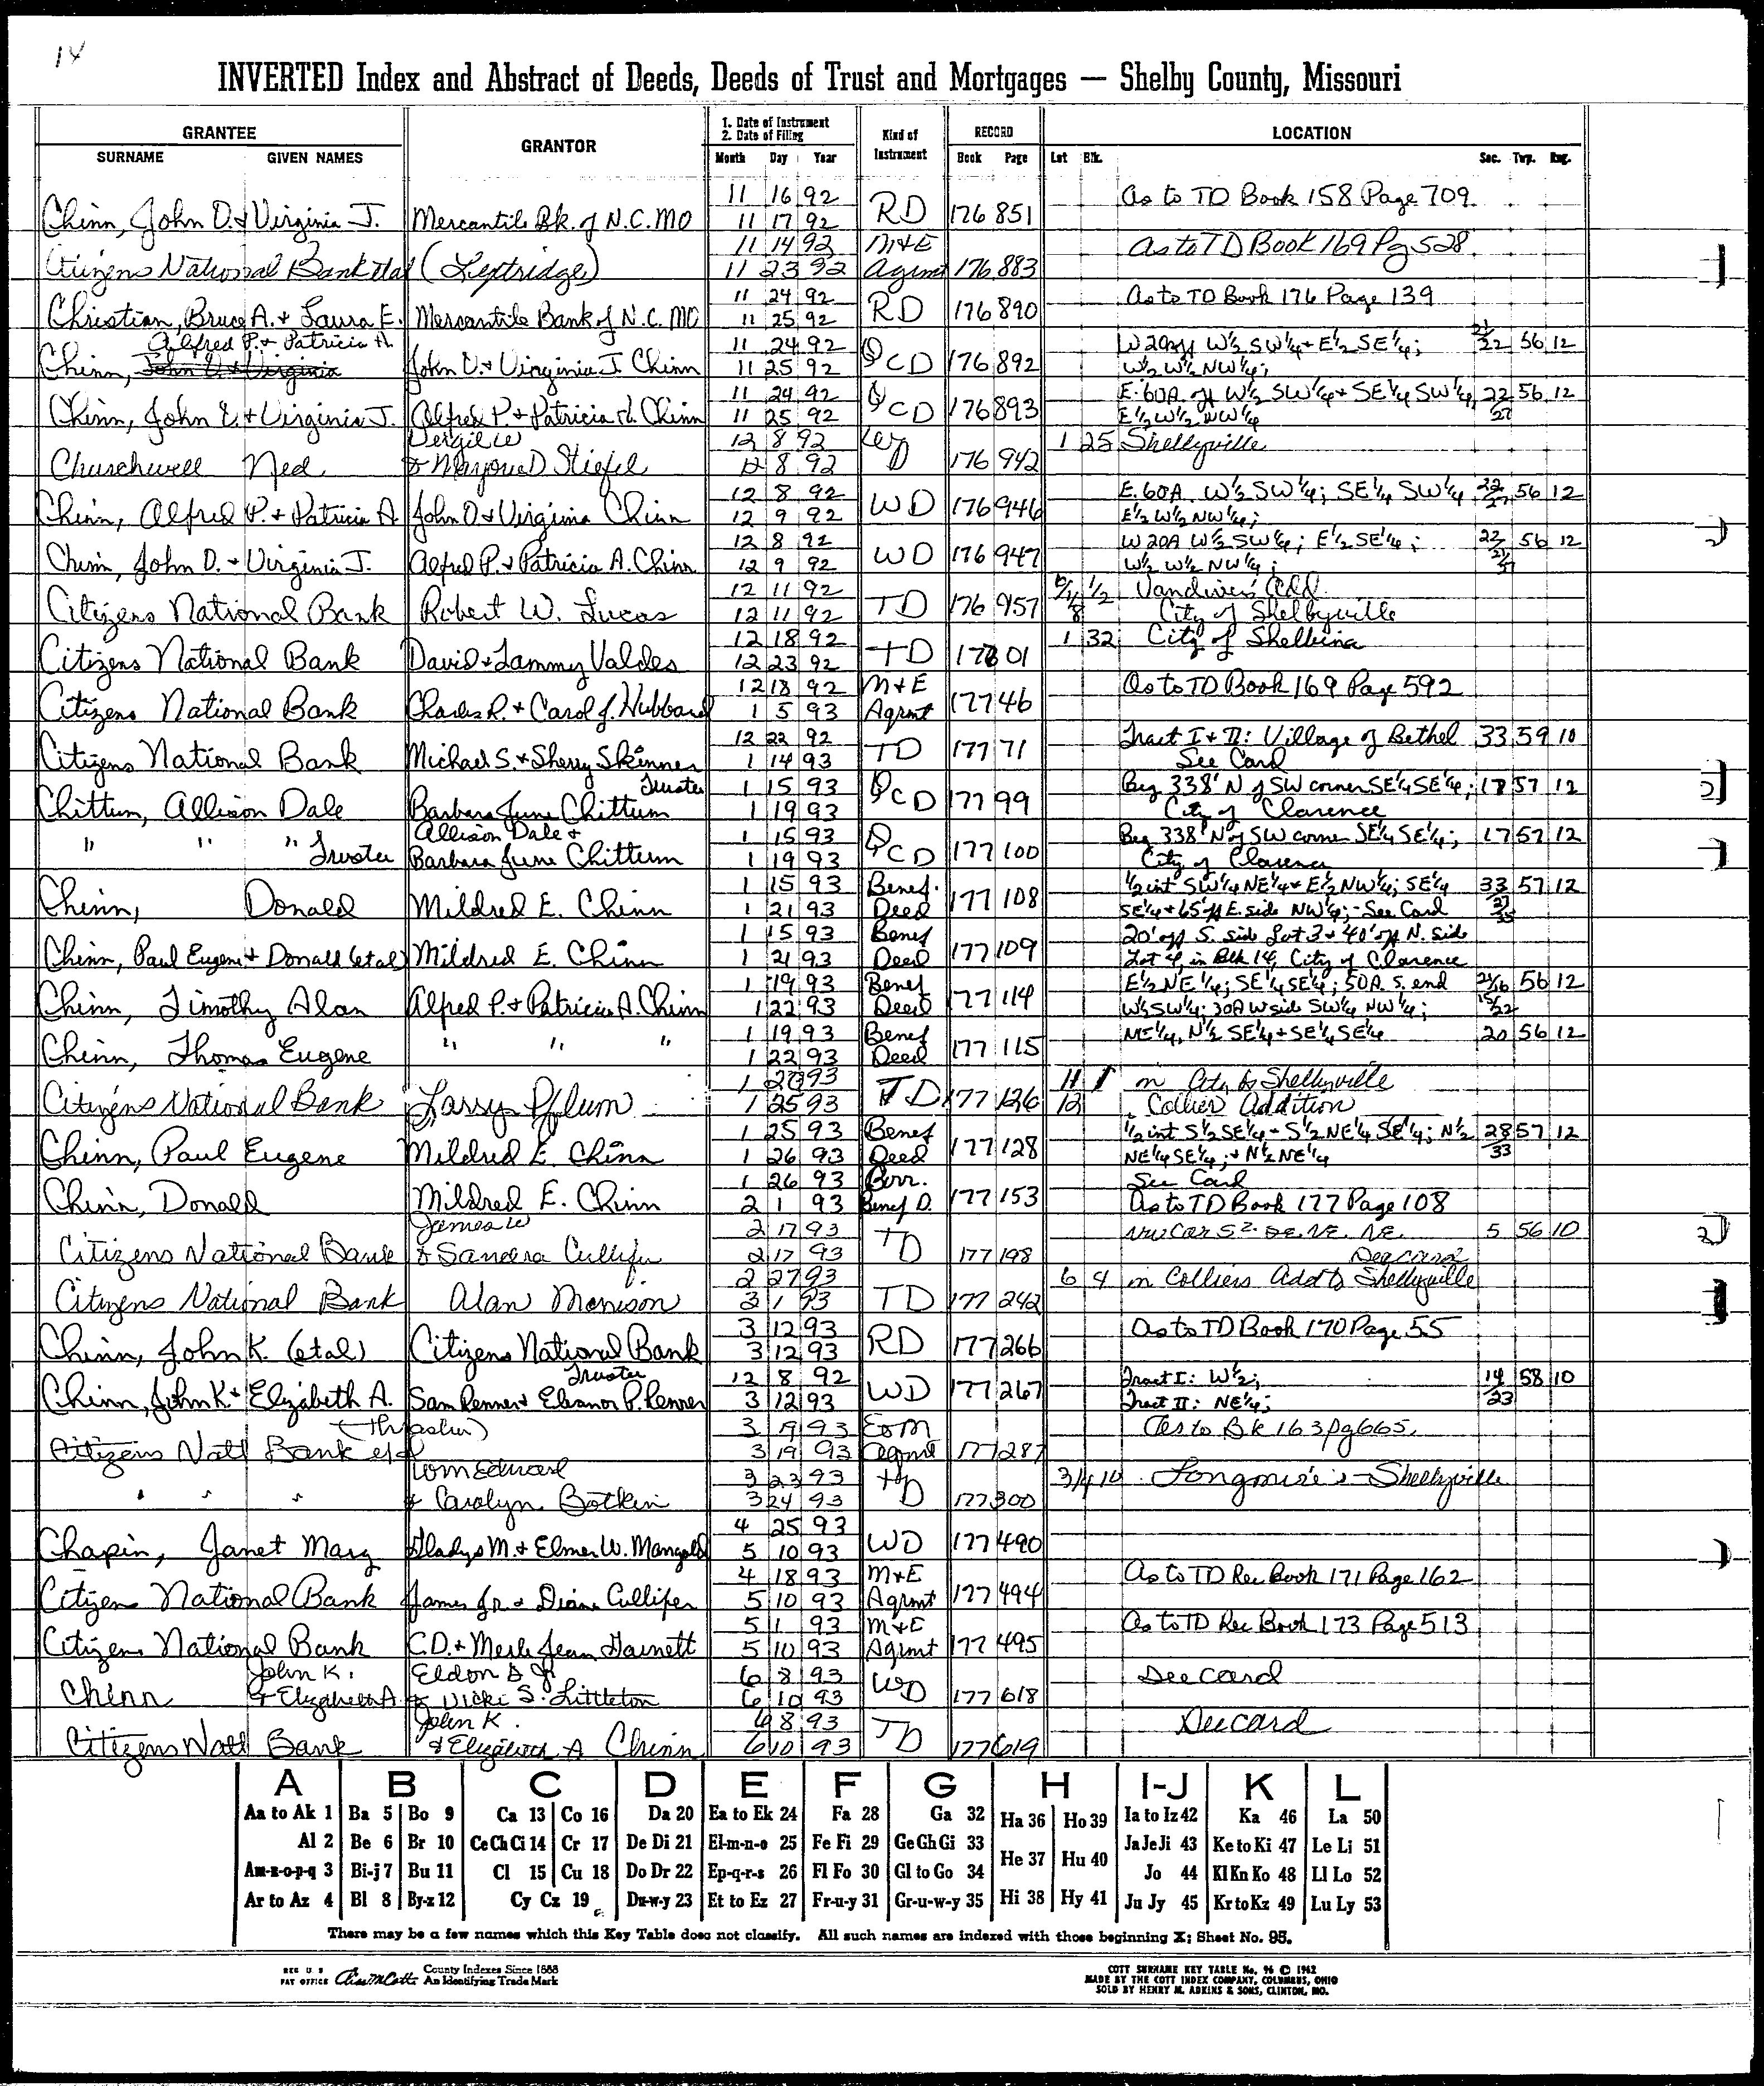 14
INVERTED Index and Abstract of Deeds, Deeds of Trust and Mortgages — Shelby County, Missouri
GRANTEE GRANTOR 1. Date of Instrument 2. Date of Filing Kind of Instrument RECORD LOCATION
SURNAME GIVEN NAMES Month Day Year Book Page Lot Blk. Sec. Twp. Rng.
11 16 92 As to TD Book 158 Page 709
Chinn, John D. & Virginia J. Mercantile Bk. of N.C. MO 11 17 92 RD 176 851
11 14 92 M+E As to TD Book 169 Pg 528
Citizens National Bank etal 11 23 92 Agmt 176 883
11 24 92 As to TD Book 176 Page 139
Christian, Bruce A. & Laura E. Mercantile Bank of N.C. MO 11 25 92 RD 176 890
Alfred P. & Patricia A. 11 24 92 W 20A of W½ SW¼ + E½ SE¼; 21/22 56 12
Chinn, John D. & Virginia John D. & Virginia J. Chinn 11 25 92 QCD 176 892 W½ W½ NW¼;
11 24 92 E. 60A. of W½ SW¼ + SE¼ SW¼ 22/27 56 12
Chinn, John D. + Virginia J. Alfred P. + Patricia A. Chinn 11 25 92 QCD 176 893 E½ W½ NW¼
Vergil W 12 8 92 1 25 Shelbyville
Churchwell Ned & Marjorie D Stiefel 12 8 92 WD 176 942
12 8 92 E. 60A. W½ SW¼; SE¼ SW¼ 22/27 56 12
Chinn, Alfred P. + Patricia A John D. & Virginia Chinn 12 9 92 WD 176 946 E½ W½ NW¼;
12 8 92 W 20A W½ SW¼; E½ SE¼; 22/21/27 56 12
Chinn, John D. + Virginia J. Alfred P. & Patricia A. Chinn 12 9 92 WD 176 947 W½ W½ NW¼;
12 11 92 Vandiver's Add.
Citizens National Bank Robert W. Lucas 12 11 92 TD 176 957 8 City of Shelbyville
12 18 92 1 32 City of Shelbina
Citizens National Bank David & Tammy Valdes 12 23 92 TD 177 01
12 18 92 M+E As to TD Book 169 Page 592
Citizens National Bank Charles R. + Carol J. Hubbard 1 5 93 Agrmt 177 46
12 22 92 Tract I + II: Village of Bethel 33 59 10
Citizens National Bank Michael S. & Sherry Skinner 1 14 93 TD 177 71 See Card
Trustee 1 15 93 Beg 338' N of SW corner SE¼ SE¼; 17 57 12
Chittum, Allison Dale Barbara June Chittum 1 19 93 QCD 177 99 City of Clarence
Allison Dale & 1 15 93 Beg 338' N of SW corner SE¼ SE¼; 17 57 12
" " " Trustee Barbara June Chittum 1 19 93 QCD 177 100 City of Clarence
1 15 93 Benef. ½ int SW¼ NE¼ + E½ NW¼; SE¼ 33 57 12
Chinn, Donald Mildred E. Chinn 1 21 93 Deed 177 108 SE¼ + 65' off E. side NW¼; - See Card
1 15 93 Benef 20' off S. side Lot 3 + 40' off N. side
Chinn, Paul Eugene + Donald (etal) Mildred E. Chinn 1 21 93 Deed 177 109 Lot 4, in Blk 14, City of Clarence
1 19 93 Benef E½ NE¼; SE¼ SE¼; 50A. S. end 21/16 56 12
Chinn, Timothy Alan Alfred P. + Patricia A. Chinn 1 22 93 Deed 177 114 W½ SW¼; 30A W side SW¼ NW¼; 15/22
1 19 93 Benef NE¼, N½ SE¼ + SE¼ SE¼ 20 56 12
Chinn, Thomas Eugene " " " 1 22 93 Deed 177 115
11 1 in City of Shelbyville
Citizens National Bank Larry Pflum 1 25 93 TD 177 126 12 Collier Addition
1 25 93 Benef ½ int S½ SE¼ - S½ NE¼ SE¼; N½ 28 57 12
Chinn, Paul Eugene Mildred E. Chinn 1 26 93 Deed 177 128 NE¼ SE¼; + N½ NE¼ 33
1 26 93 Corr. See Card
Chinn, Donald Mildred E. Chinn 2 1 93 Benef D. 177 153 As to TD Book 177 Page 108
James W 2 17 93 5 56 10
Citizens National Bank & Sandra Cullifer 2 17 93 TD 177 198 See card
2 27 93 6 4 in Colliers Add to Shelbyville
Citizens National Bank Alan Monison 3 1 93 TD 177 242
3 12 93 As to TD Book 170 Page 55
Chinn, John K. (etal) Citizens National Bank 3 12 93 RD 177 266
Trustee 12 8 92 Tract I: W½; 14 58 10
Chinn, John K. & Elizabeth A. Sam Renner & Eleanor P. Renner 3 12 93 WD 177 267 Tract II: NE¼; 23
3 19 93 EoM As to Bk 163 pg 665.
Citizens Natl Bank etal 3 19 93 Agmt 177 287
Wm Edward 3 23 93 3/4 10 Longmire's - Shelbyville
" " " & Carolyn Botkin 3 24 93 TD 177 300
4 25 93
Chapin, Janet Mary Gladys M. & Elmer W. Mangold 5 10 93 WD 177 490
4 18 93 M+E As to TD Rec Book 171 Page 162
Citizens National Bank James Jr. & Diane Cullifer 5 10 93 Agrmt 177 494
5 1 93 M+E As to TD Rec Book 173 Page 513
Citizens National Bank C.D. + Merle Jean Garnett 5 10 93 Agrmt 177 495
John K. Eldon D Jr. 6 8 93 See card
Chinn & Elizabeth A & Vicki S. Littleton 6 10 93 WD 177 618
John K. 6 8 93 See card
Citizens Natl Bank & Elizabeth A Chinn 6 10 93 TD 177 619
A B C D E F G H I-J K L
Aa to Ak 1 Ba 5 Bo 9 Ca 13 Co 16 Da 20 Ea to Ek 24 Fa 28 Ga 32 Ha 36 Ho 39 Ia to Iz 42 Ka 46 La 50
Al 2 Be 6 Br 10 Ce Ch Ci 14 Cr 17 De Di 21 El-m-n-o 25 Fe Fi 29 Ge Gh Gi 33 He 37 Hu 40 Ja Je Ji 43 Ke to Ki 47 Le Li 51
Am-n-o-p-q 3 Bi-j 7 Bu 11 Cl 15 Cu 18 Do Dr 22 Ep-q-r-s 26 Fl Fo 30 Gl to Go 34 Hi 38 Hy 41 Jo 44 Kl Kn Ko 48 Ll Lo 52
Ar to Az 4 Bl 8 By-z 12 Cy Cz 19 Du-w-y 23 Et to Ez 27 Fr-u-y 31 Gr-u-w-y 35 Ju Jy 45 Kr to Kz 49 Lu Ly 53
There may be a few names which this Key Table does not classify. All such names are indexed with those beginning X; Sheet No. 95.
REG U S PAT OFFICE County Indexes Since 1888 An Identifying Trade Mark
COTT SURNAME KEY TABLE No. 96 © 1962
MADE BY THE COTT INDEX COMPANY, COLUMBUS, OHIO
SOLD BY HENRY M. ADKINS & SONS, CLINTON, MO.